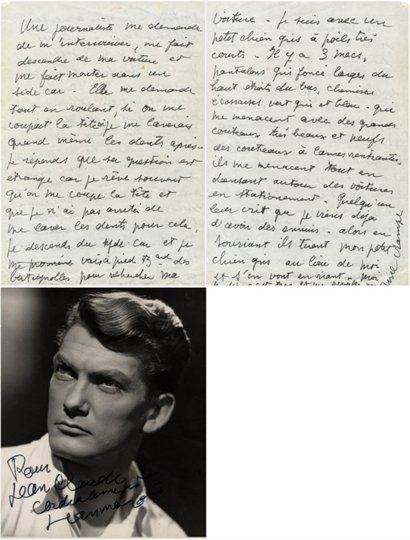 Une journaliste me demande
de m'interviewer, me fait
descendre de ma voiture et
me fait monter dans un
side car. Elle me demande
tout en roulant, si on me
coupait la tête je me laverais
quand même les dents après.
Je réponds que sa question est
étrange car je rêve souvent
qu'on me coupe la tête et
que je n'ai pas arrêté de
me laver les dents pour cela.
je descends du side car et je
me promène à pied Bd des
batignolles pour rechercher ma
voiture - Je suis avec un
petit chien gris à poils très
courts - Il y a 3 mecs,
pantalons gris foncé larges du
haut étroits du bas, chemises
écossaises vert gris et bleu - qui
me menacent avec des grands
couteaux très beaux et neufs
des couteaux à lames rentrantes.
ils me menacent tout en
dansant autour des voitures
en stationnement. Quelqu'un
leur crit que je viens déjà
d'avoir des ennuis - alors en
souriant ils tuent mon petit
chien gris au lieu de moi
et s'en vont en riant -
Pour
Jean Claude
Cordialement